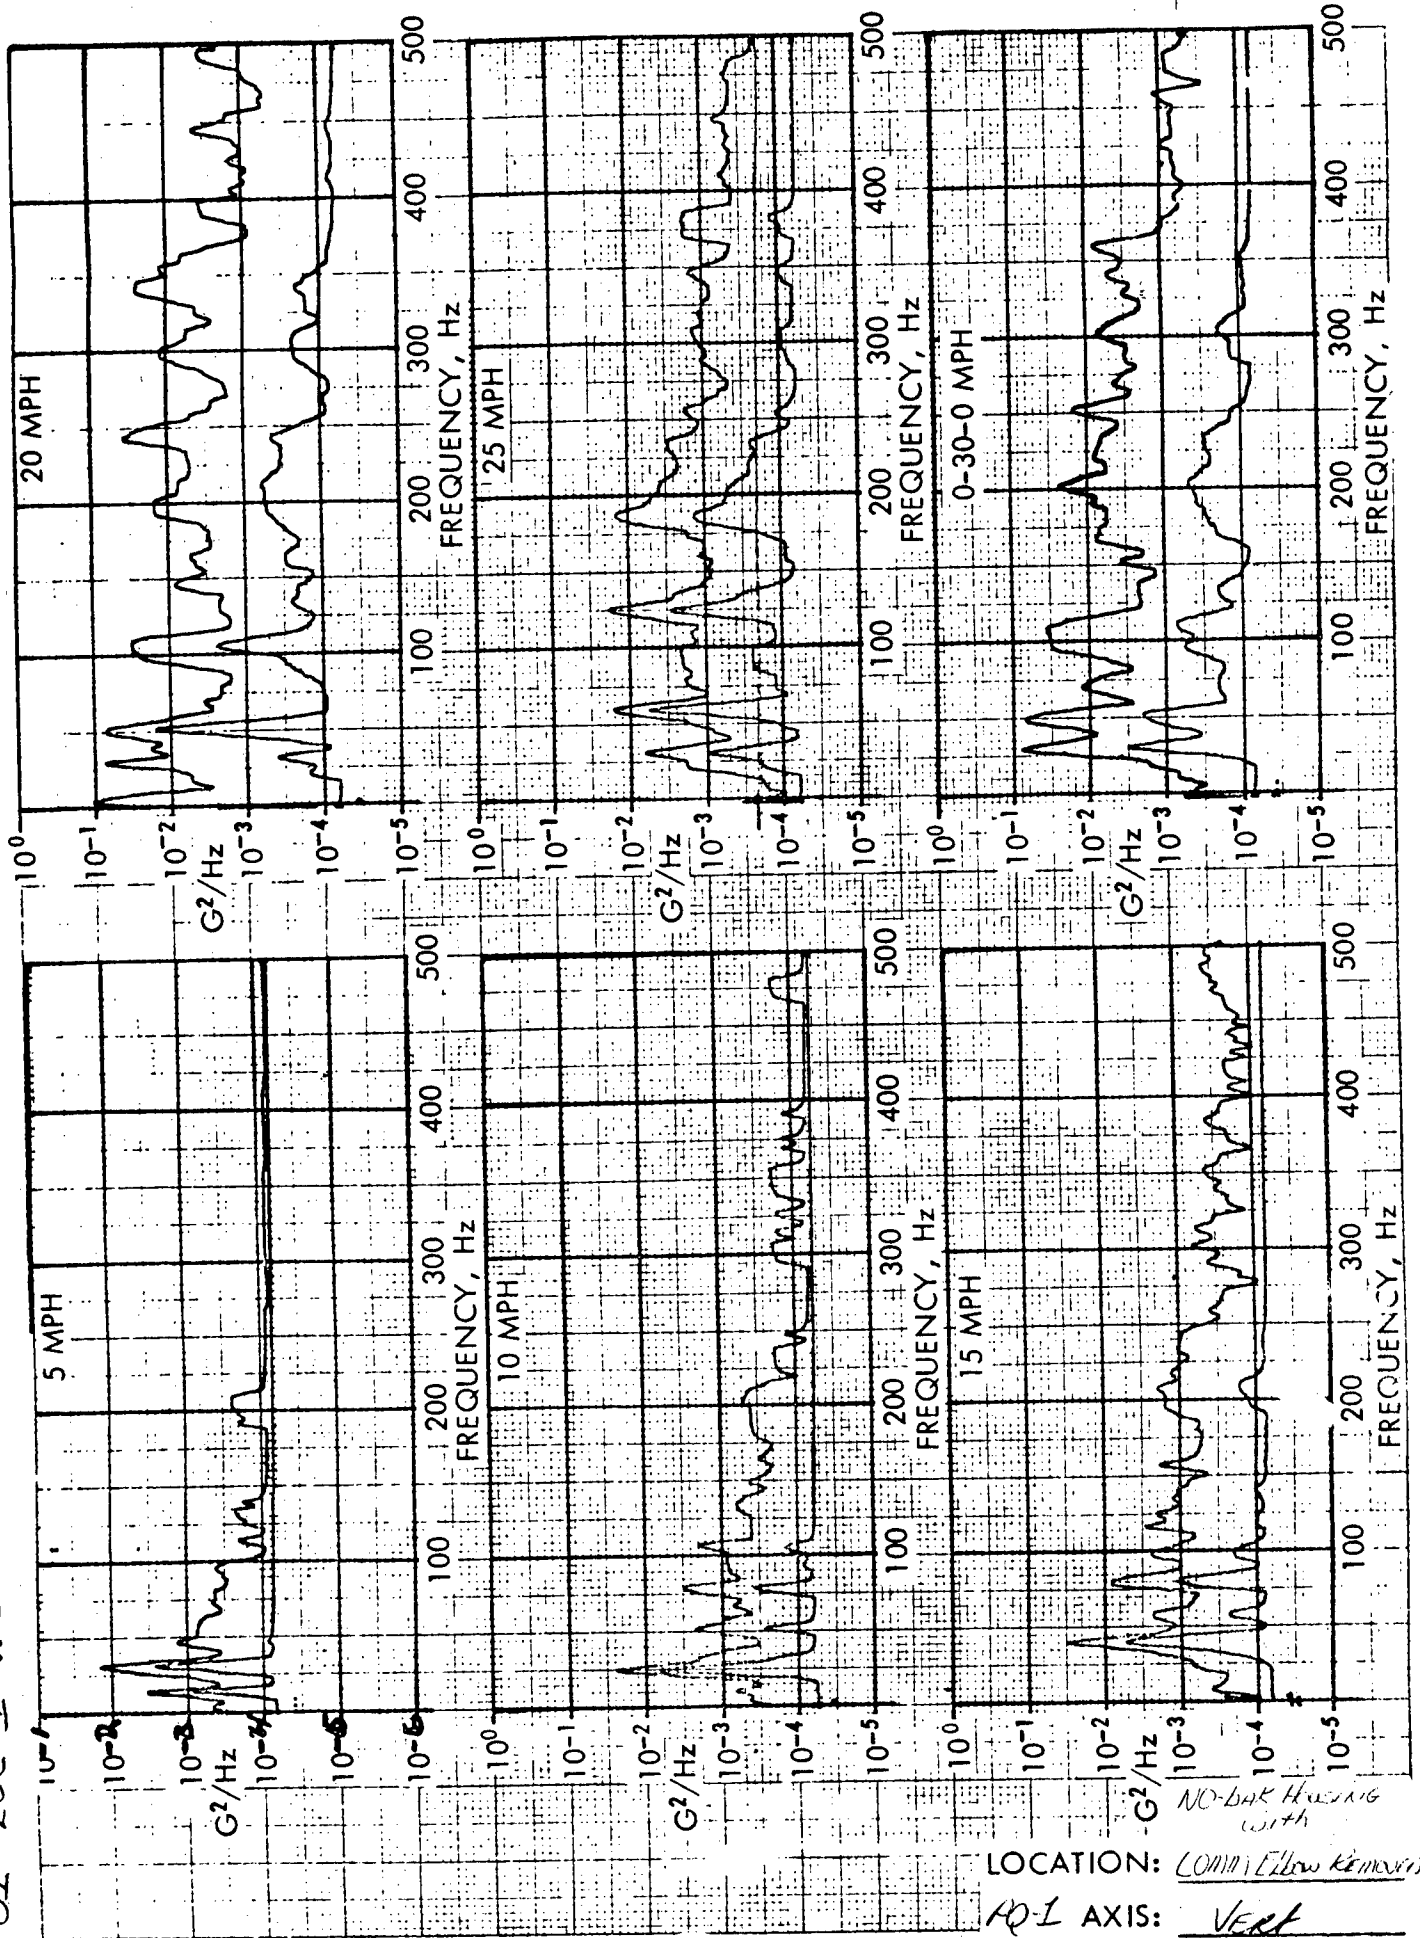 5 MPH
10⁻¹
10⁻²
10⁻³
10⁻⁴
10⁻⁵
10⁻⁶
G²/Hz
100
200
300
400
500
FREQUENCY, Hz
10 MPH
10⁰
10⁻¹
10⁻²
10⁻³
10⁻⁴
10⁻⁵
G²/Hz
100
200
300
400
500
FREQUENCY, Hz
15 MPH
10⁰
10⁻¹
10⁻²
10⁻³
10⁻⁴
10⁻⁵
G²/Hz
100
200
300
400
500
FREQUENCY, Hz
20 MPH
10⁰
10⁻¹
10⁻²
10⁻³
10⁻⁴
10⁻⁵
G²/Hz
100
200
300
400
500
FREQUENCY, Hz
25 MPH
10⁰
10⁻¹
10⁻²
10⁻³
10⁻⁴
10⁻⁵
G²/Hz
100
200
300
400
500
FREQUENCY, Hz
0-30-0 MPH
10⁰
10⁻¹
10⁻²
10⁻³
10⁻⁴
10⁻⁵
G²/Hz
100
200
300
400
500
FREQUENCY, Hz
NO-BAK HOUSING
with
LOCATION: COMM Elbow Removed
AXIS: VERT